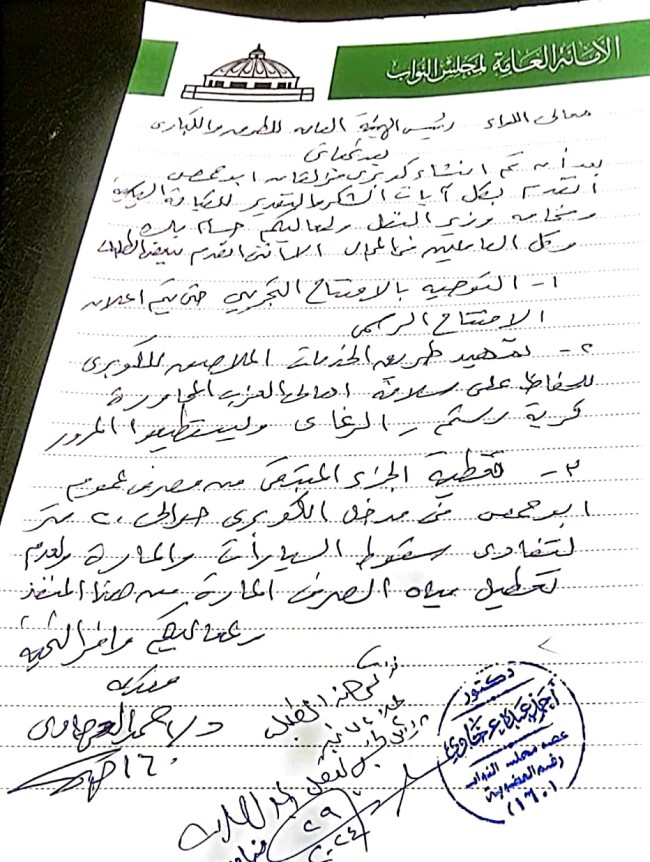 الأمانة العامة لمجلس النواب
معالى اللواء رئيس الهيئة العامة للطرق والكبارى
بعد تحياتى
بعد أن تم انشاء كوبرى مزلقان ابوحمص
أتقدم بكل آيات الشكر والتقدير للقيادة السياسية
وفخامة وزير النقل ولمعاليكم
وكل العاملين فى المجال
١- التوصية بالافتتاح التجريبى حتى يتم اعلان
الافتتاح الرسمى
٢- تمهيد طريق الخدمات الملاصق للكوبرى
للحفاظ على سلامة اهالى العزب المجاورة
كرية رستم - الرغاى وليستطيعوا المرور
٣- تغطية الجزء المتبقى من مصرف عموم
ابوحمص فى مدخل الكوبرى حوالى ٢٠ متر
لتفادى سقوط السيارات والمارة ولعدم
تعطيل مياه الصرف المارة من هذا المنفذ
ولمعاليكم وافر التحية
مقدمه
د/ احمد
١٦٠
دكتور
عضو مجلس النواب
رقم العضوية
(١٦٠)
٢٩
٢٠٢٤